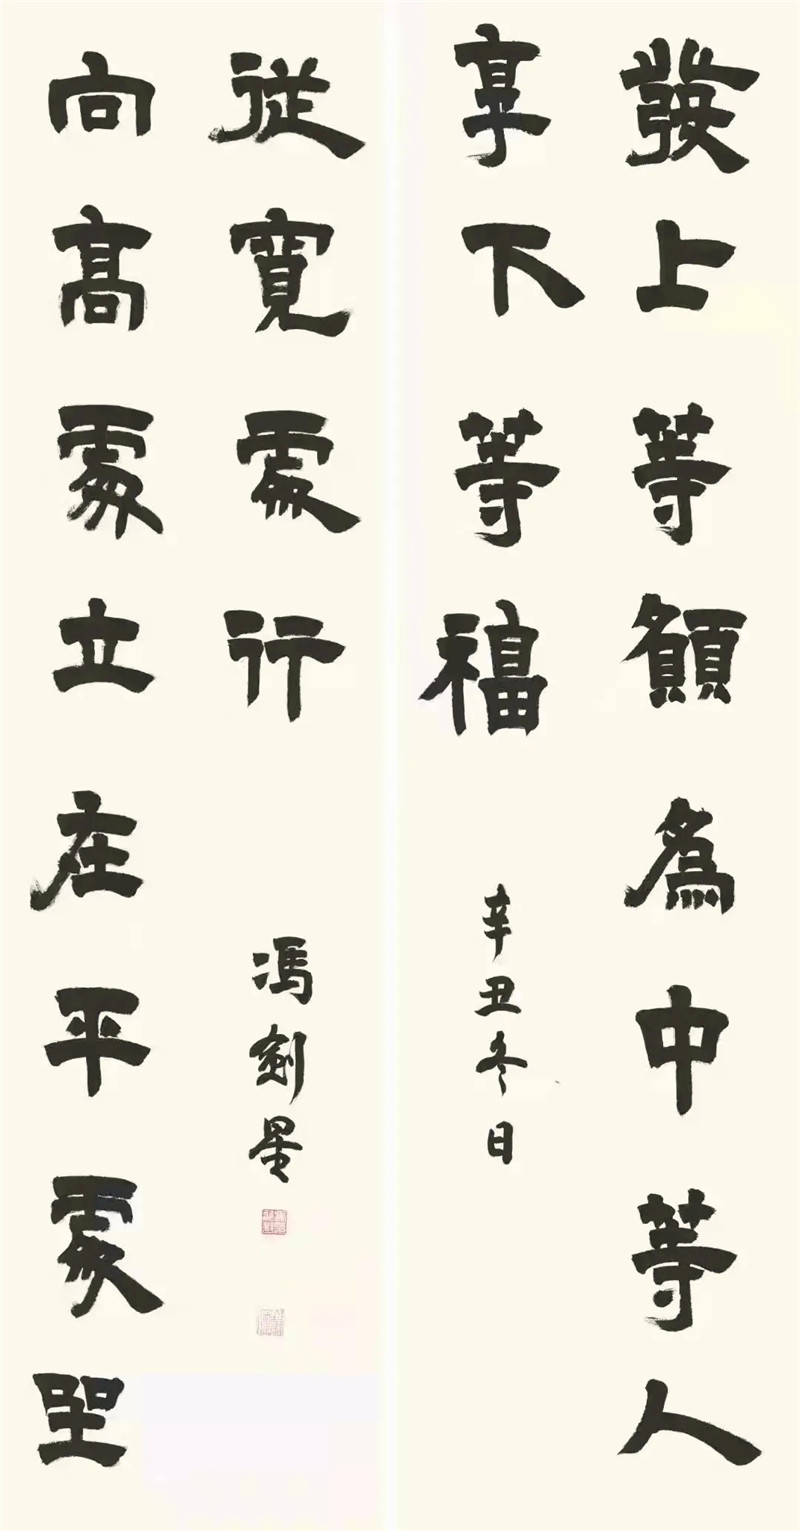 發上等願為中等人
享下等福
辛丑冬日
向高處立在平處坐
從寬處行
馮劍星